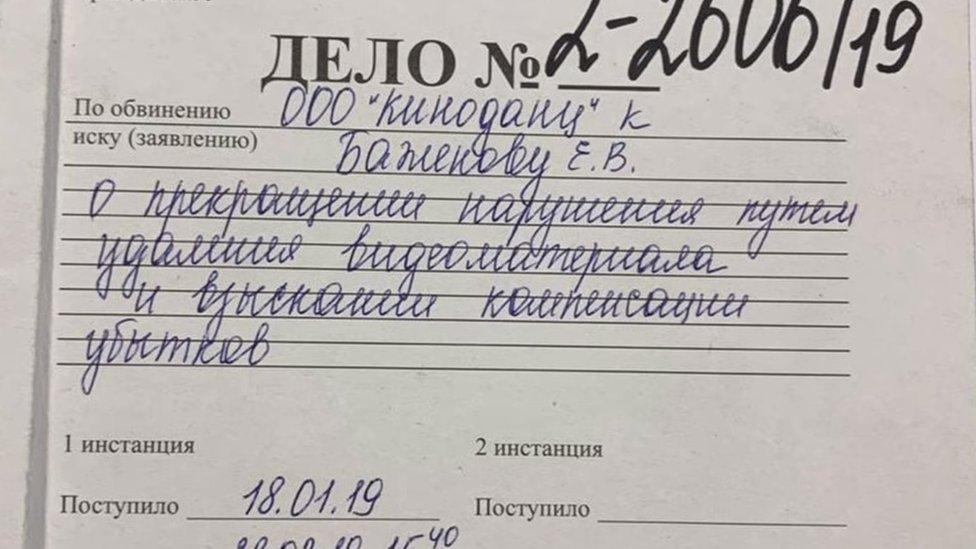 ДЕЛО № 2-2606/19
По обвинению ООО "Киноданц" к
иску (заявлению) Баженову Е.В.
о прекращении нарушения путем
удаления видеоматериала
и взыскании компенсации
убытков
1 инстанция 2 инстанция
Поступило 18.01.19 Поступило